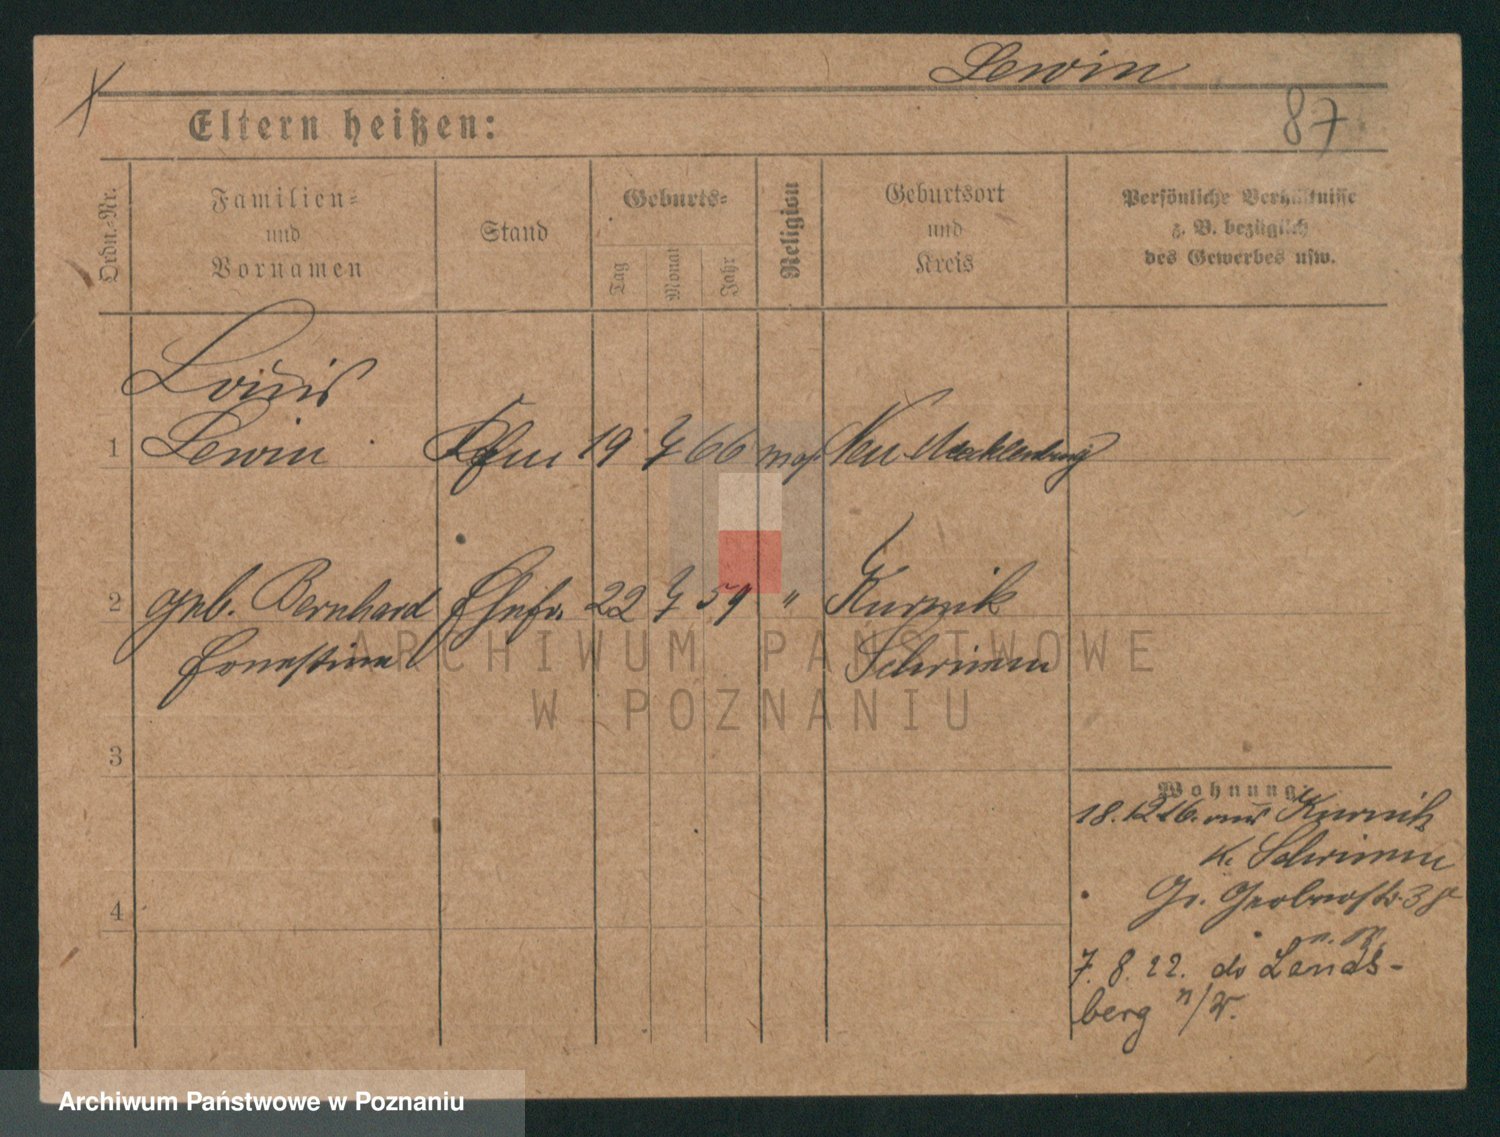 Lewin
87
Eltern heißen:
Ordn.-Nr.
Familien-
und
Vornamen
Stand
Geburts-
Tag
Monat
Jahr
Religion
Geburtsort
und
Kreis
Persönliche Verhältnisse
z. B. bezüglich
des Gewerbes usw.
Louis
1 Lewin Kfm 19 7 66 mos. Neu Mecklenburg
2 geb. Bernhard Ehefr. 22 7 59 " Kurnik
Ernestine Schrimm
3
4
Wohnung:
18.12 16. aus Kurnik
K. Schrimm
Gr. Gerberstr. 38
7. 8. 22. Lands-
berg n/W.
ARCHIWUM PAŃSTWOWE
W POZNANIU
Archiwum Państwowe w Poznaniu